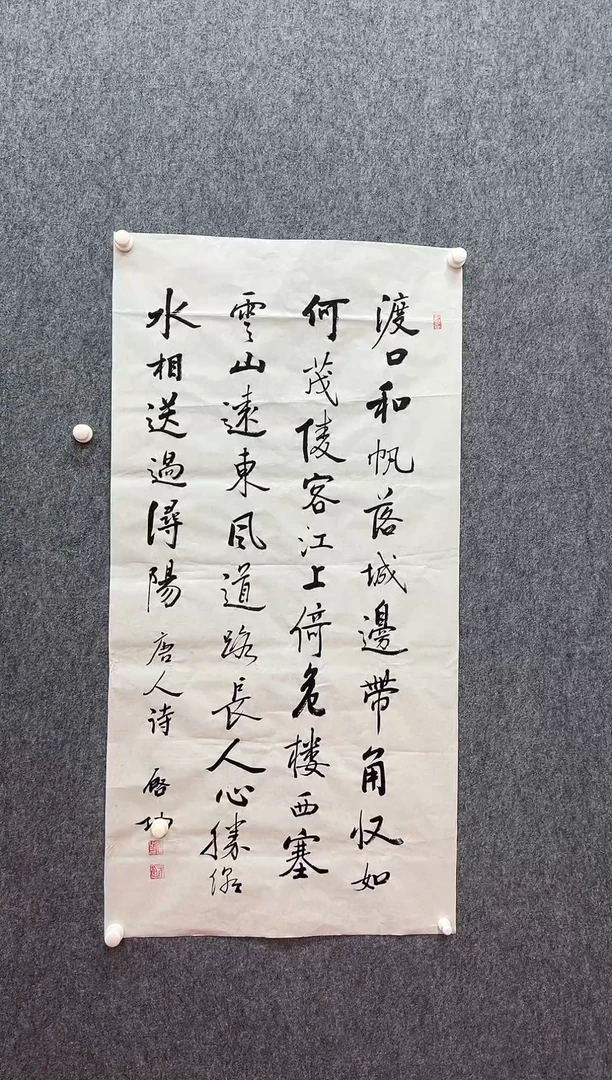 渡口和帆落城邊帶角收如
何茂陵客江上倚危樓西塞
雲山遠東風道路長人心勝
水相送過潯陽 唐人诗 啓功